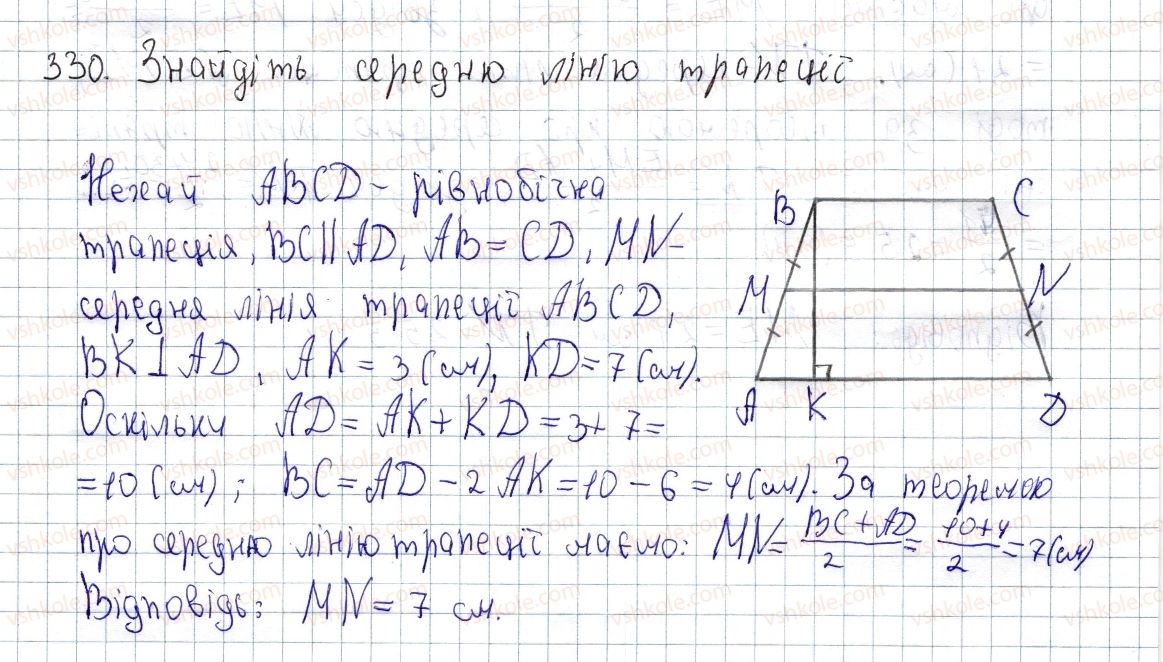 330. Знайдіть середню лінію трапеції.
Нехай ABCD - рівнобічна
трапеція, BC || AD, AB = CD, MN -
середня лінія трапеції ABCD,
BK ⊥ AD, AK = 3 (см), KD = 7 (см).
Оскільки AD = AK + KD = 3 + 7 =
= 10 (см); BC = AD - 2 AK = 10 - 6 = 4 (см). За теоремою
про середню лінію трапеції маємо: MN = (BC + AD)/2 = (10 + 4)/2 = 7 (см)
Відповідь: MN = 7 см.
B C
M N
A K D
vshkole.com